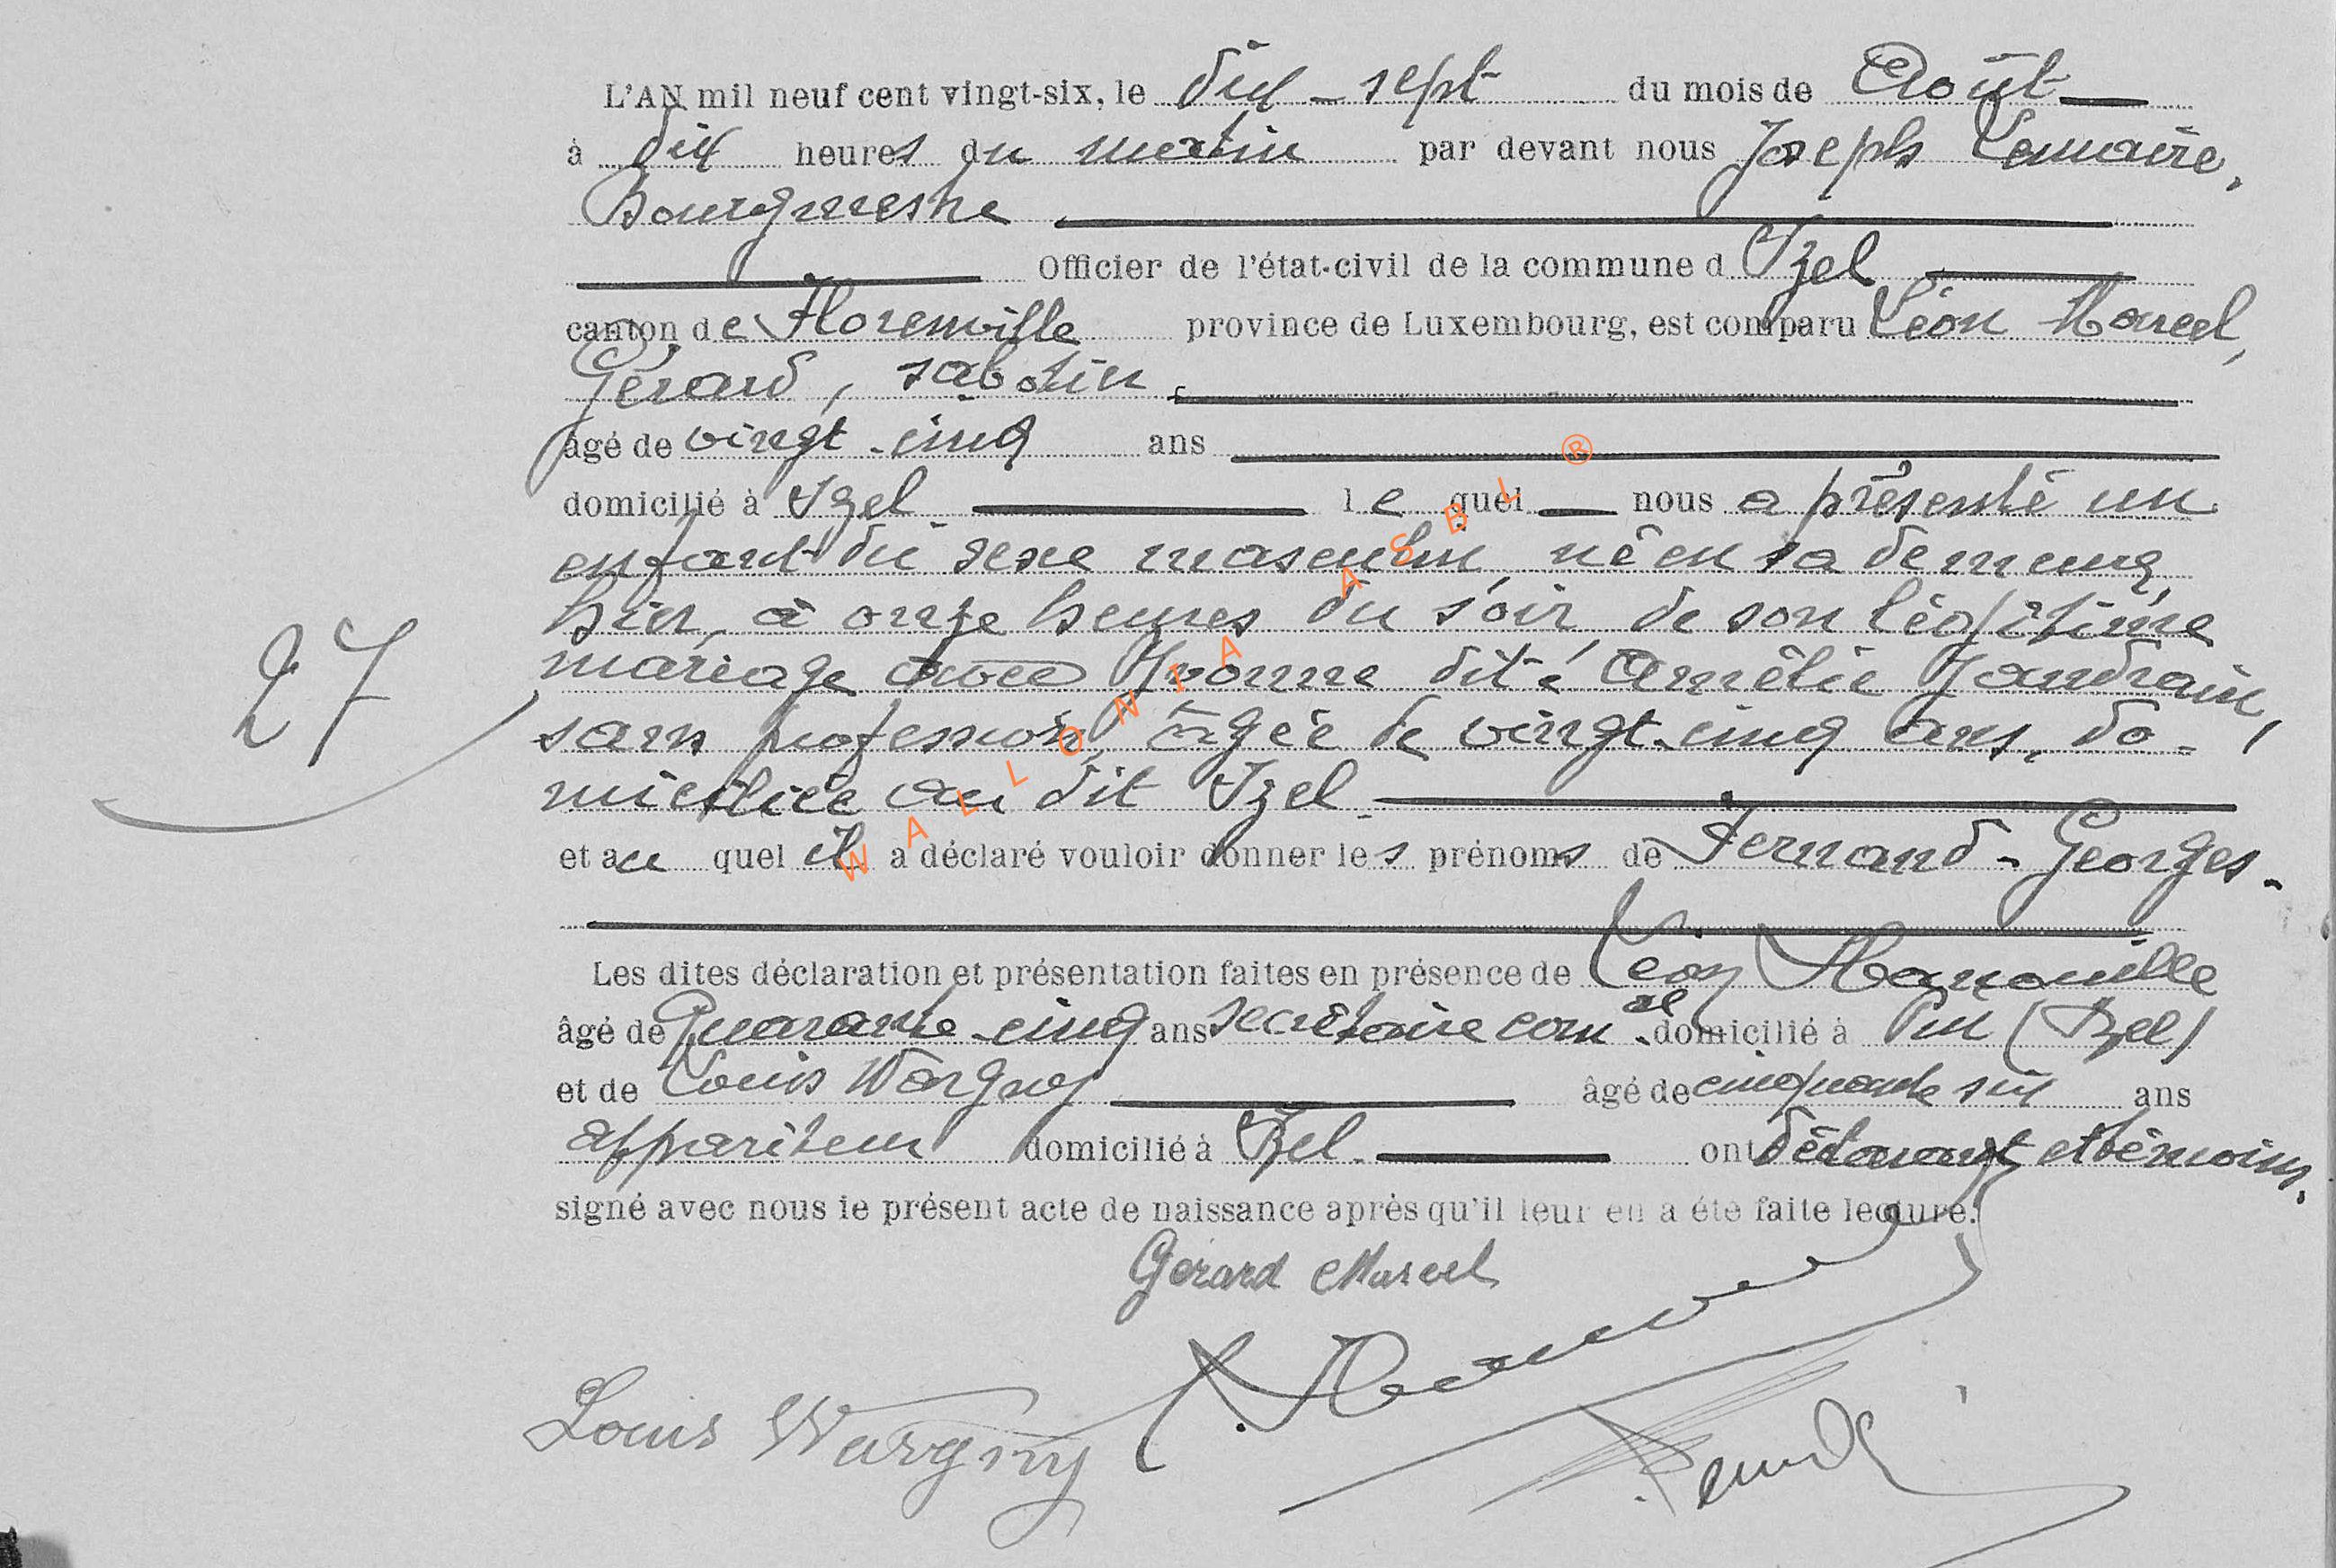 L'AN mil neuf cent vingt-six, le dix-sept du mois de Août
à dix heures du matin par devant nous Joseph Lemaire,
Bourgmestre
Officier de l'état-civil de la commune d Izel
canton de Florenville province de Luxembourg, est comparu Léon Marcel,
Gérard, sabotier,
âgé de vingt-cinq ans
domicilié à Izel lequel nous a présenté un
enfant du sexe masculin, né en sa demeure,
hier, à onze heures du soir, de son légitime
mariage avec Yvonne dite Amélie Jandrain,
27
sans profession, âgée de vingt-cinq ans, do-
miciliée au dit Izel
et au quel il a déclaré vouloir donner les prénoms de Fernand-Georges.
Les dites déclaration et présentation faites en présence de Léon
âgé de Quarante-cinq ans secrétaire com.al domicilié à Pin (Izel)
et de Louis Wargny âgé de cinquante six ans
appariteur domicilié à Izel ont déclarant et témoins,
signé avec nous le présent acte de naissance après qu'il leur en a été faite lecture.
Gerard Marcel
Louis Wargny
WALLONIA ASBL ®